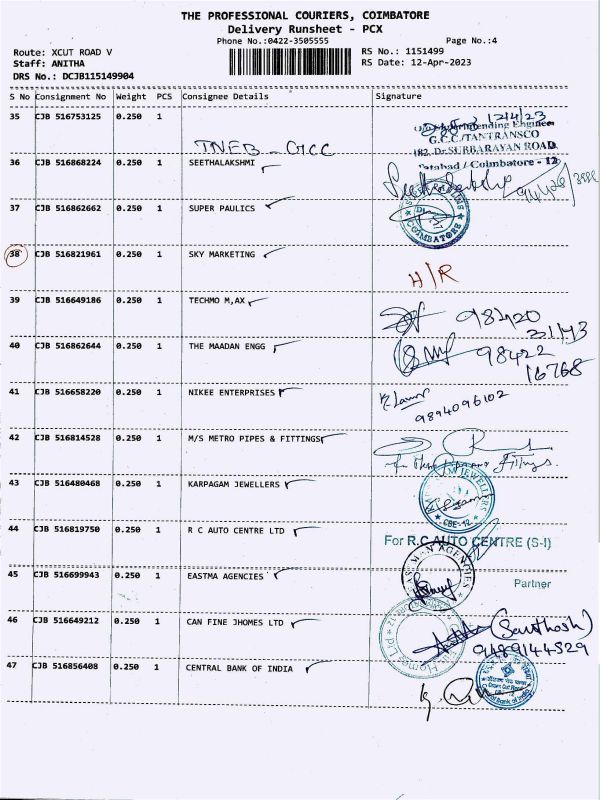 THE PROFESSIONAL COURIERS, COIMBATORE
Delivery Runsheet - PCX
Phone No.:0422-3505555 Page No.:4
Route: XCUT ROAD V RS No.: 1151499
Staff: ANITHA RS Date: 12-Apr-2023
DRS No.: DCJB115149904
S No Consignment No Weight PCS Consignee Details Signature
35 CJB 516753125 0.250 1 TNEB - GCC 12/4/23
G.C.C/TANTRANSCO
182, Dr.SUBBARAYAN ROAD
Tatabad / Coimbatore - 12
36 CJB 516868224 0.250 1 SEETHALAKSHMI
37 CJB 516862662 0.250 1 SUPER PAULICS COIMBATORE
38 CJB 516821961 0.250 1 SKY MARKETING H/R
39 CJB 516649186 0.250 1 TECHMO M,AX 98420
40 CJB 516862644 0.250 1 THE MAADAN ENGG 98422
16768
41 CJB 516658220 0.250 1 NIKEE ENTERPRISES
9894096102
42 CJB 516814528 0.250 1 M/S METRO PIPES & FITTINGS
43 CJB 516480468 0.250 1 KARPAGAM JEWELLERS JEWELLERS
CBE-12
44 CJB 516819750 0.250 1 R C AUTO CENTRE LTD For R.C AUTO CENTRE (S-I)
45 CJB 516699943 0.250 1 EASTMA AGENCIES AGENCIES Partner
46 CJB 516649212 0.250 1 CAN FINE JHOMES LTD (Santhosh)
9489144529
47 CJB 516856408 0.250 1 CENTRAL BANK OF INDIA